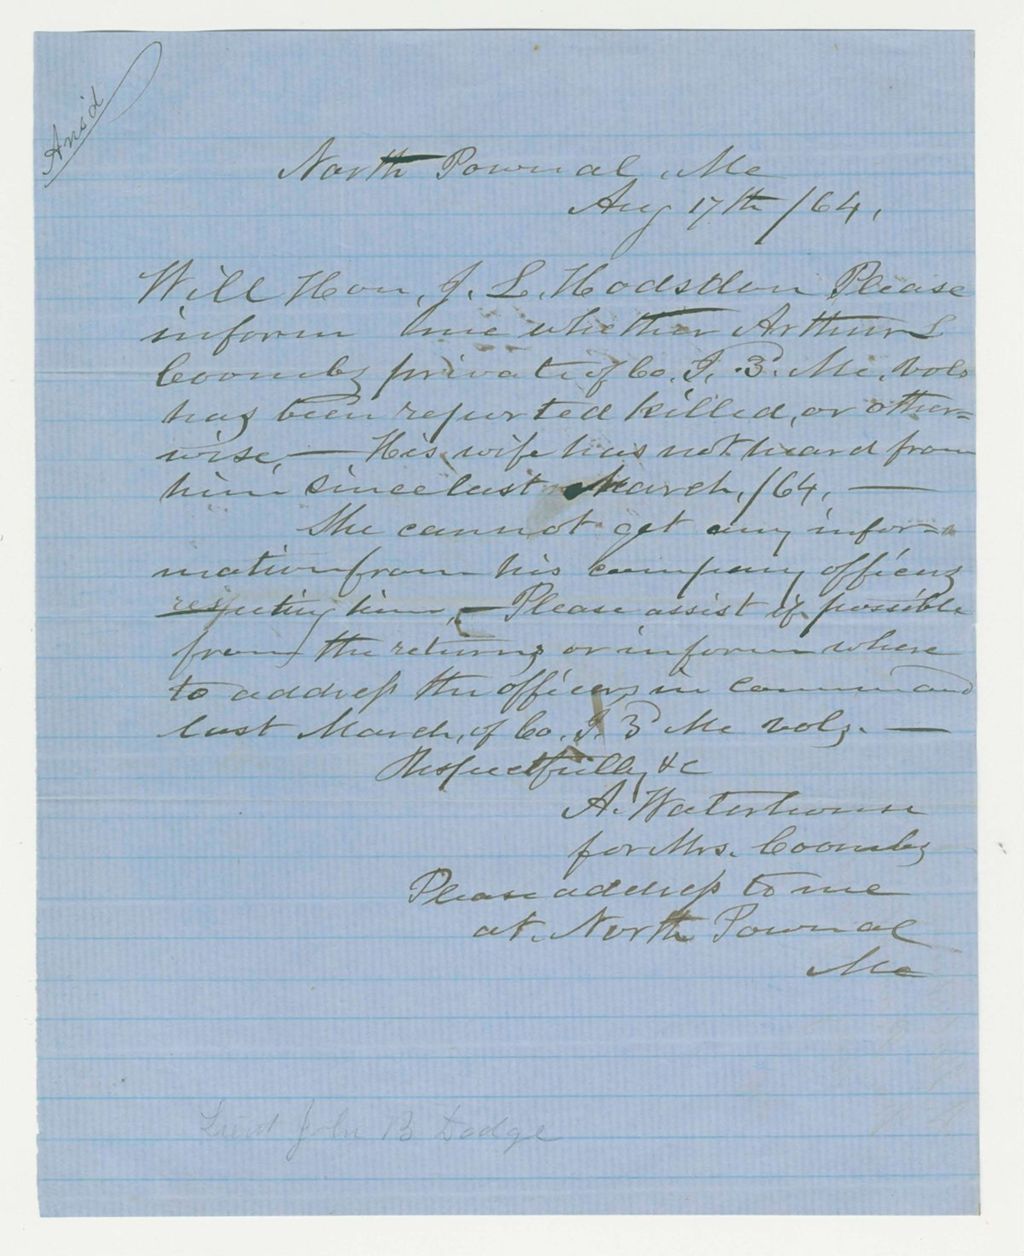 Ans'd
North Pownal, Me
Aug 17th /64.
Will Hon. J. L. Hodsdon Please
inform me whether Arthur L
Coombs private of Co. I. 3. Me. vols
has been reported killed, or other=
wise, — His wife has not heard from
him since last March, /64. —
She cannot get any infor-
mation from his company officers
respecting him, — Please assist if possible
from the returns or inform where
to address the officers in command
last March, of Co. I. 3 Me vols. —
Respectfully &c
A. Waterhouse
for Mrs. Coombs
Please address to me
at North Pownal
Me
Lieut John B Dodge